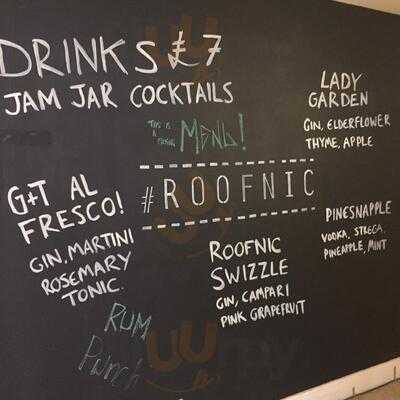 DRINKS £7
JAM JAR COCKTAILS
THIS IS
A
MENU!
#ROOFNIC
LADY
GARDEN
GIN, ELDERFLOWER
THYME, APPLE
G+T AL
FRESCO!
GIN, MARTINI
ROSEMARY
TONIC.
ROOFNIC
SWIZZLE
GIN, CAMPARI
PINK GRAPEFRUIT
PINESNAPPLE
VODKA, STREGA,
PINEAPPLE, MINT
RUM
Punch